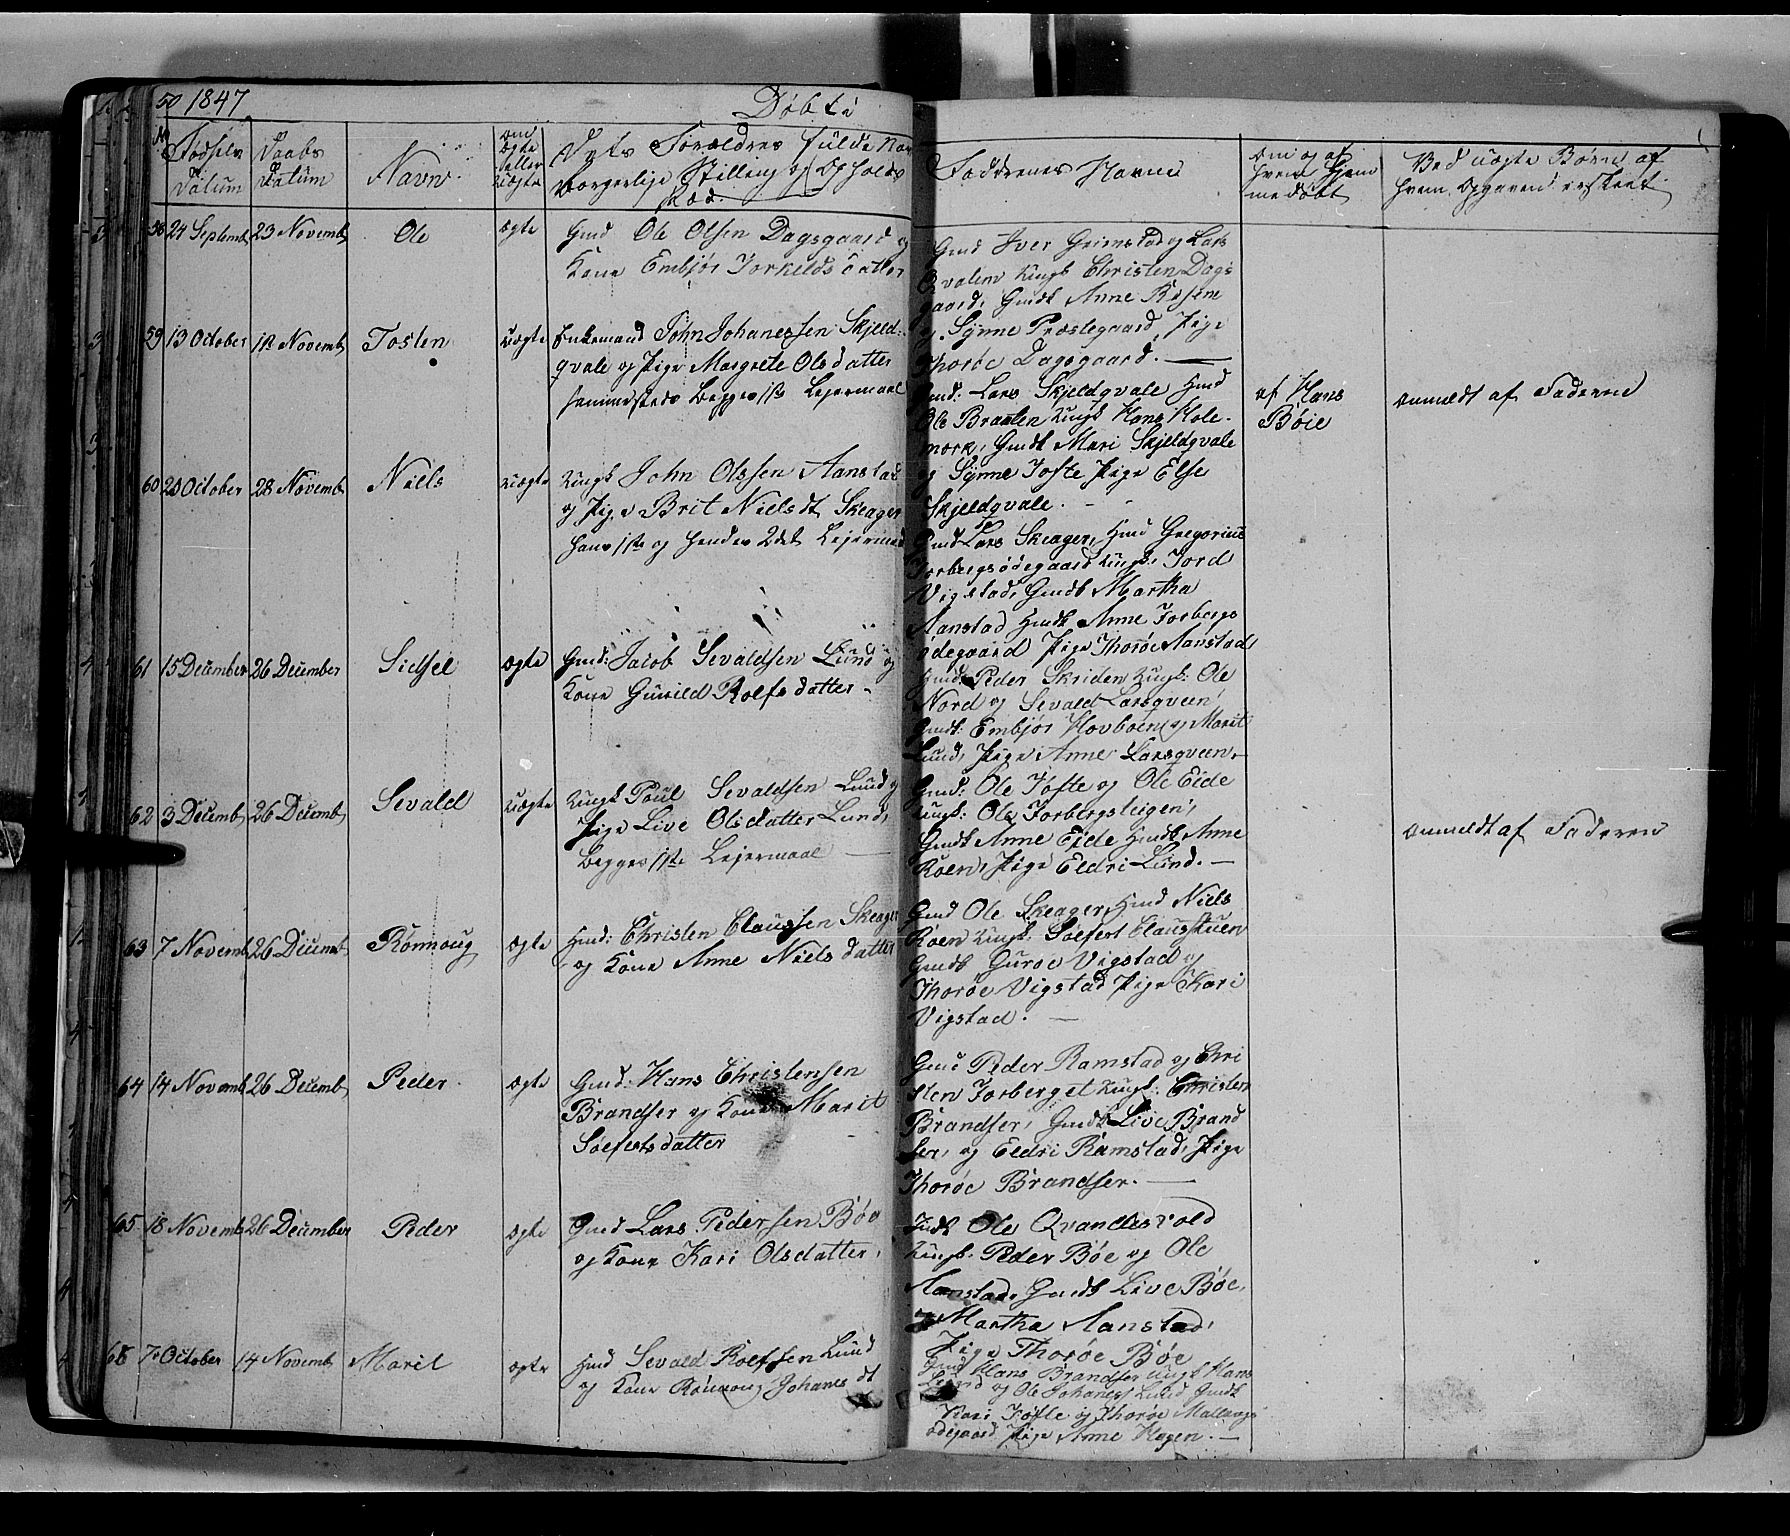 50 1847 Döbte
No Födsels Datum Daabs Datum Navn om ægte eller uægte Dets Forældres fulde Nav Borgerlige Stilling og Opholds Sted
Faddernes Navne Om og af hvem Hjem medöbt Ved uægte Börn af hvem Opgaven er skeet
58 24 Septemb 23 Novemb Ole ægte Gmd Ole Olsen Dagsgaard og
Kone Embjör Torkeldsdatter
Gmd Iver Grimstad og Lars
Qvalem Ungk Christen Dags
gaard, Gmdk Anne
og Synne Præstegaard, Pige
Thoröe Dagsgaard. —
59 13 October 1ste Novemb Tosten uægte Enkemand John Johanessen Skjeld
qvale og Pige Margrete Olsdatter
sammesteds Begges 1ste Lejermaal
Gmd: Lars Skjeldqvale Hmd
Ole Braaten Ungk Hans Kole
mork, Gmdk Mari Skjeldqvale
og Synne Tofte Pige Else
Skjeldqvale. -
af Hans
Böie
anmeldt af Faderen
60 20 October 28 Novemb Niels uægte Ungk John Olssen Aanstad
og Pige Brit Nielsdt Skeager
hans 1ste og hendes 2det Lejermaal
Gmd Lars Skeager, Hmd Gregorius
Forbergsödegaard Ungk: Tord
Vigstad, Gmdk Martha
Aanstad Hmdk Anne Forbergs
ödegaard Pige Thoröe Aanstad,
61 15 December 26 December Sidsel ægte Gmd: Jacob Sevaldsen Lund og
Kone Gunild Rolfsdatter -
Hmd Peder Skriden Ungk: Ole
Nord og Sevald Larsqveen,
Gmdk: Embjör Hovboen og Marit
Lund, Pige Anne Larsqveen -
62 3 Decemb 26 Decemb Sevald uægte Ungk Poul Sevaldsen Lund og
Pige Live Olsdatter Lund,
Begges 1ste Lejermaal —
Gmd: Ole Tofte og Ole Eide
Ungk: Ole Forbergsteigen,
Gmdk Anne Eide Hmdk Anne
Roen, Pige Eldri Lund. —
anmeldt af Faderen
63 7 Novemb 26 Decemb Rönnoug ægte Hmd: Christen Claussen Skeager
og Kone Anne Nielsdatter
Gmd Ole Skeager, Hmd Niels
Roen Ungk: Soefert Clausstuen
Gmdk Guroe Vigstad og
Thoröe Vigstad Pige Kari
Vigstad. —
64 14 Novemb 26 Decemb Peder ægte Gmd: Hans Christensen
Brandser og Kone Marit
Soefertsdatter
Gmd Peder Ramstad og Chri
sten Forberget Ungk: Christen
Brandser, Gmdk Live Brand
ser, og Eldri Ramstad, Pige
Thoröe Brandser. —
65 18 Novemb 26 December Peder ægte Gmd Lars Pedersen Böe
og Kone Kari Olsdatter,
Ole Qvandesvold
Ungk: Peder Böe og Ole
Aanstad, Gmdk Live Böe,
og Martha Aanstad,
Pige Thoröe Böe
66 7 October 14 Novemb Marit ægte Hmd Sevald Rolfsen Lund
og Kone Rönnoug Johanesdt
Gmd Hans Brandser Ungk Hans
Lund og Ole Johaness Lund Gmdk
Kari Tofte og Thoröe Mallangs
ödegaard Pige Anne Hagen. —